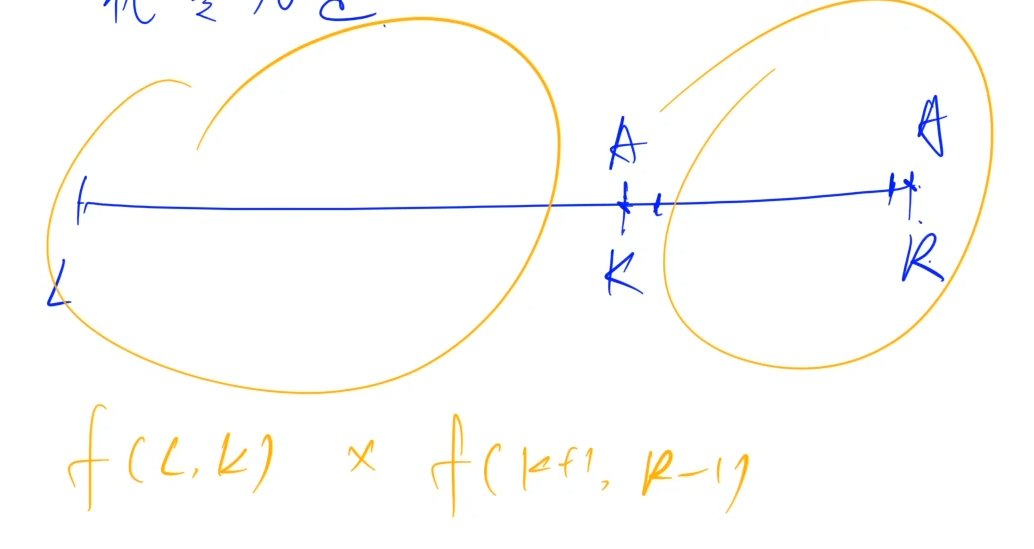 A A
L K R
f(L, K) × f(K+1, R-1)